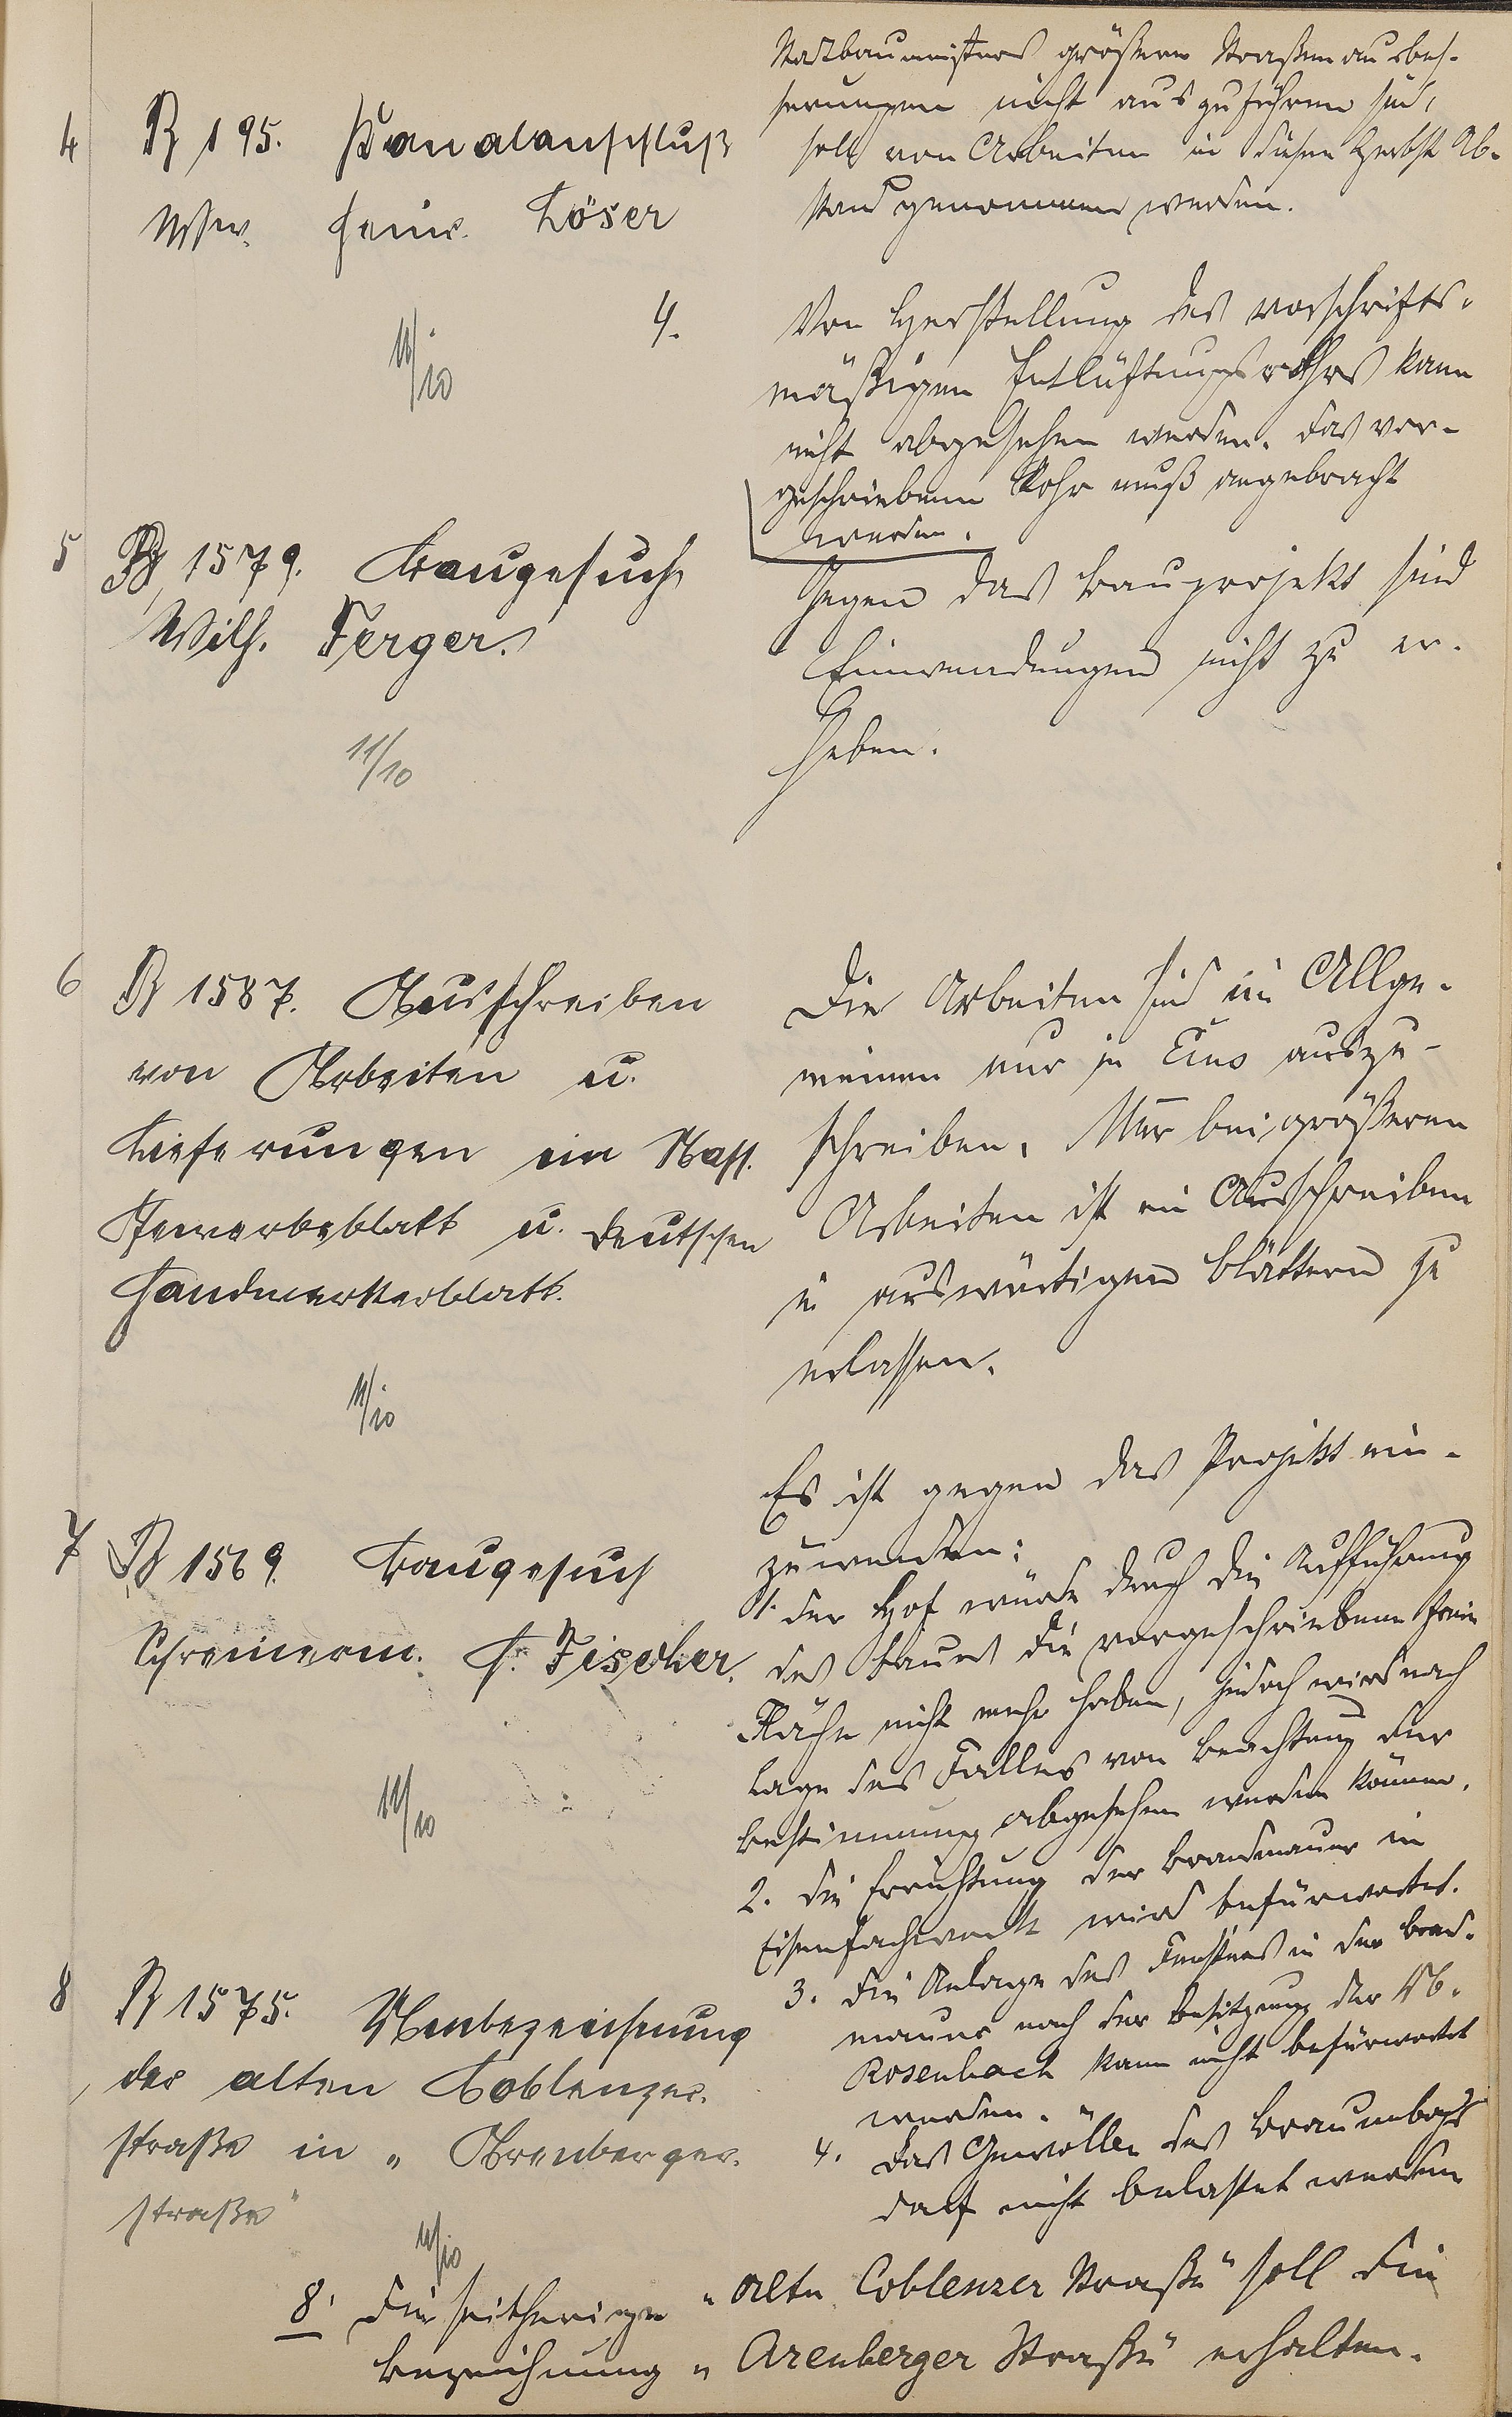 Stadtbaumeisters größere Straßenausbes-
serungen nicht auszuführen sind,
soll von Arbeiten in diesem Herbst Ab-
stand genommen werden.
4
B 195. Kanalanschluß
Wwe. Heinr. Löser
11/10
4. Von Herstellung des vorschrifts-
mäßigen Entlüftungsrohrs kann
nicht abgesehen werden. Das vor-
geschriebene Rohr muß angebracht
werden.
5
B 1579. Baugesuch
Wilh. Ferger.
11/10
Gegen das Bauprojekt sind
Einwendungen nicht zu er-
heben.
6
B 1587. Ausschreiben
von Arbeiten u.
Lieferungen im Nass.
Gewerbeblatt u. Deutschen
Handwerkerblatt.
11/10
Die Arbeiten sind im Allge-
meinen nur in Ems auszu-
schreiben. Nur bei größeren
Arbeiten ist ein Ausschreiben
in auswärtigen Blättern zu
erlassen.
7
B 1569. Baugesuch
Schreinerm. H. Fischer.
11/10
Es ist gegen das Projekt ein-
zuwenden:
1. Der Hof würde durch die Aufführung
des Baues die vorgeschriebene freie
Fläche nicht mehr haben, jedoch wird nach
Lage des Falles von Beachtung der
Bestimmung abgesehen werden können.
2. Die Errichtung der Brandmauer in
Eisenfachwerk wird befürwortet.
3. Die Anlage des Fensters in der Brand-
mauer nach der Besitzung der
Rosenbach kann nicht befürwortet
werden.
4. Das Gewölbe des Braumbachs
darf nicht belastet werden
8
B 1575. Neubezeichnung
der alten Coblenzer-
straße in „Arenberger-
straße"
11/10
8. Die seitherige „alte Coblenzer Straße" soll die
Bezeichnung „Arenberger Straße" erhalten.